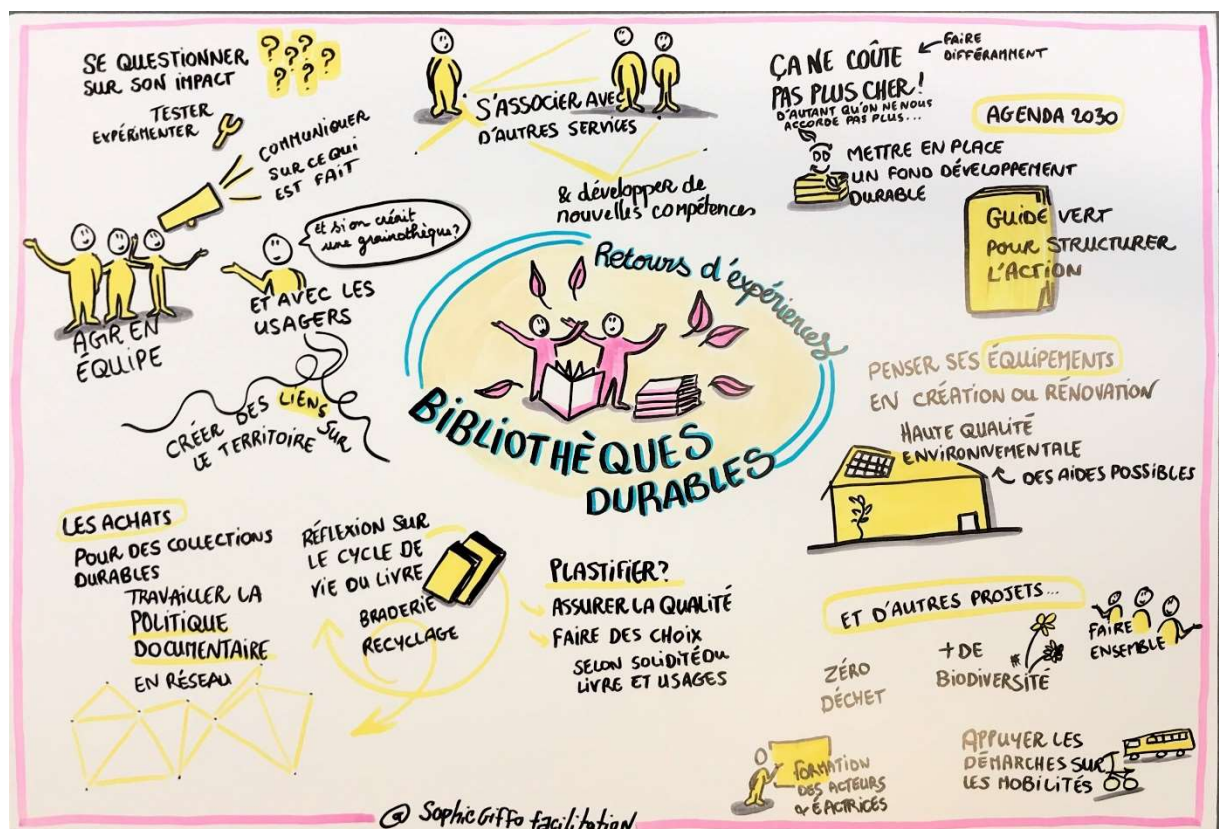 SE QUESTIONNER
SUR SON IMPACT
? ? ? ? ? ?
TESTER
EXPÉRIMENTER
COMMUNIQUER
SUR CE QUI
EST FAIT
AGIR EN
ÉQUIPE
Et si on créait
une grainothèque?
ET AVEC LES
USAGERS
CRÉER DES LIENS SUR
LE TERRITOIRE
S'ASSOCIER AVEC
D'AUTRES SERVICES
& développer de
nouvelles compétences
ÇA NE COÛTE
PAS PLUS CHER!
FAIRE
DIFFÉRAMMENT
D'AUTANT QU'ON NE NOUS
ACCORDE PAS PLUS...
METTRE EN PLACE
UN FOND DÉVELOPPEMENT
DURABLE
AGENDA 2030
GUIDE VERT
POUR STRUCTURER
L'ACTION
Retours d'expériences
BIBLIOTHÈQUES
DURABLES
PENSER SES ÉQUIPEMENTS
EN CRÉATION OU RÉNOVATION
HAUTE QUALITÉ
ENVIRONNEMENTALE
DES AIDES POSSIBLES
LES ACHATS
POUR DES COLLECTIONS
DURABLES
TRAVAILLER LA
POLITIQUE
DOCUMENTAIRE
EN RÉSEAU
RÉFLEXION SUR
LE CYCLE DE
VIE DU LIVRE
BRADERIE
RECYCLAGE
PLASTIFIER?
ASSURER LA QUALITÉ
FAIRE DES CHOIX
SELON SOLIDITÉ DU
LIVRE ET USAGES
ET D'AUTRES PROJETS...
FAIRE
ENSEMBLE
ZÉRO
DÉCHET
+ DE
BIODIVERSITÉ
FORMATION
DES ACTEURS
& ACTRICES
APPUYER LES
DÉMARCHES SUR
LES MOBILITÉS
@ Sophie Giffo facilitation